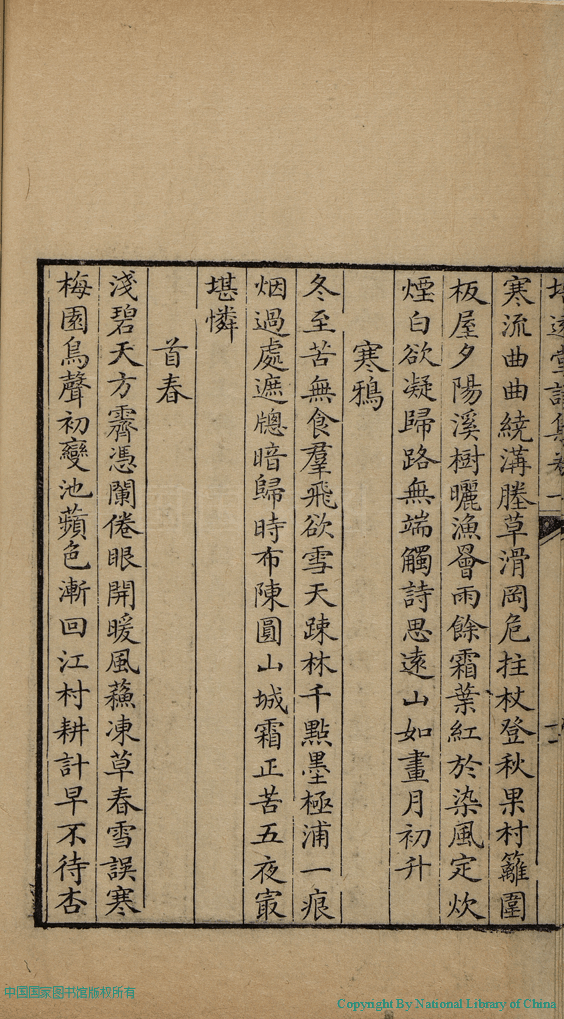 寒流曲曲繞溝塍草滑岡危拄杖登秋果村籬圍
板屋夕陽溪樹曬漁罾雨餘霜葉紅於染風定炊
煙白欲凝歸路無端觸詩思遠山如畫月初升
寒鴉
冬至苦無食羣飛欲雪天踈林千點墨極浦一痕
烟過處遮牕暗歸時布陳圓山城霜正苦五夜㝡
堪憐
首春
淺碧天方霽憑闌倦眼開暖風蘓凍草春雪誤寒
梅園鳥聲初變池蘋色漸回江村耕計早不待杏
中国国家图书馆版权所有
Copyright By National Library of China